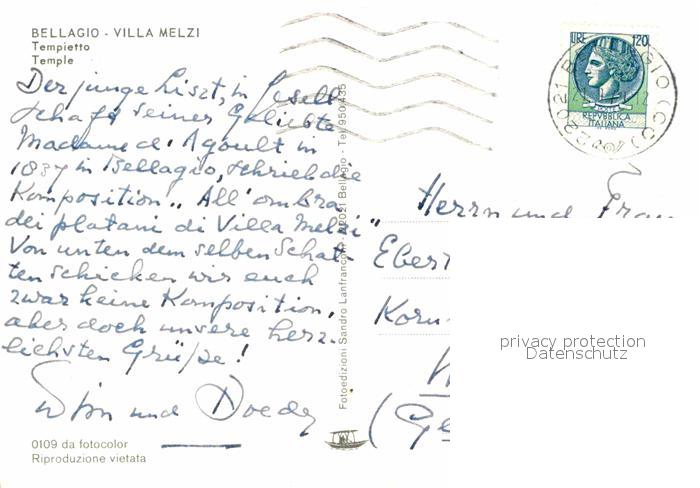 BELLAGIO - VILLA MELZI
Tempietto
Temple
Der junge Liszt, in Gesell-
schaft seiner Geliebte
Madame d'Agoult in
1837 in Bellagio, schrieb die
Komposition „All' ombra
dei platani di Villa Melzi"
Von unten dem selben Schat-
ten schicken wir euch
zwar keine Komposition,
aber doch unsere herz-
lichsten Grüße!
und
0109 da fotocolor
Riproduzione vietata
Fotoedizioni Sandro Lanfranconi - 22021 Bellagio - Tel. 950.435
LIRE 120
POSTE
REPVBBLICA
ITALIANA
22021 BELLAGIO (CO)
Herrn und Frau
Eber
Korn
(Ge
privacy protection
Datenschutz